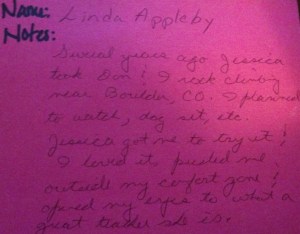 Name: Linda Appleby
Notes:
Several years ago Jessica
took Don & I rock climbing
near Boulder, CO. I planned
to watch, dog sit, etc.
Jessica got me to try it &
I loved it. pushed me
outside my comfort zone &
opened my eyes to what a
great leader she is.